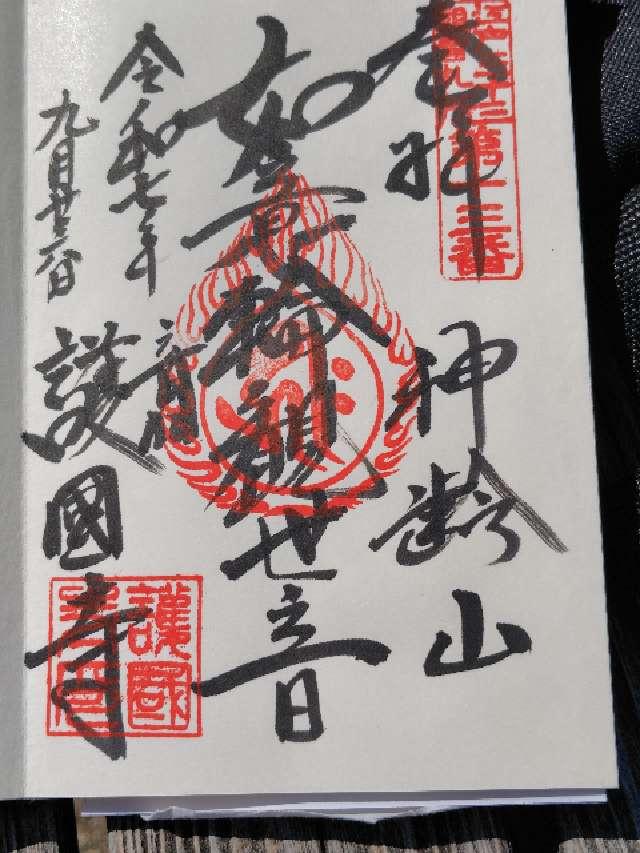 奉拝
第十三番
神齢山
如意輪観世音
令和七年
九月廿三日
音羽
護國寺
護國